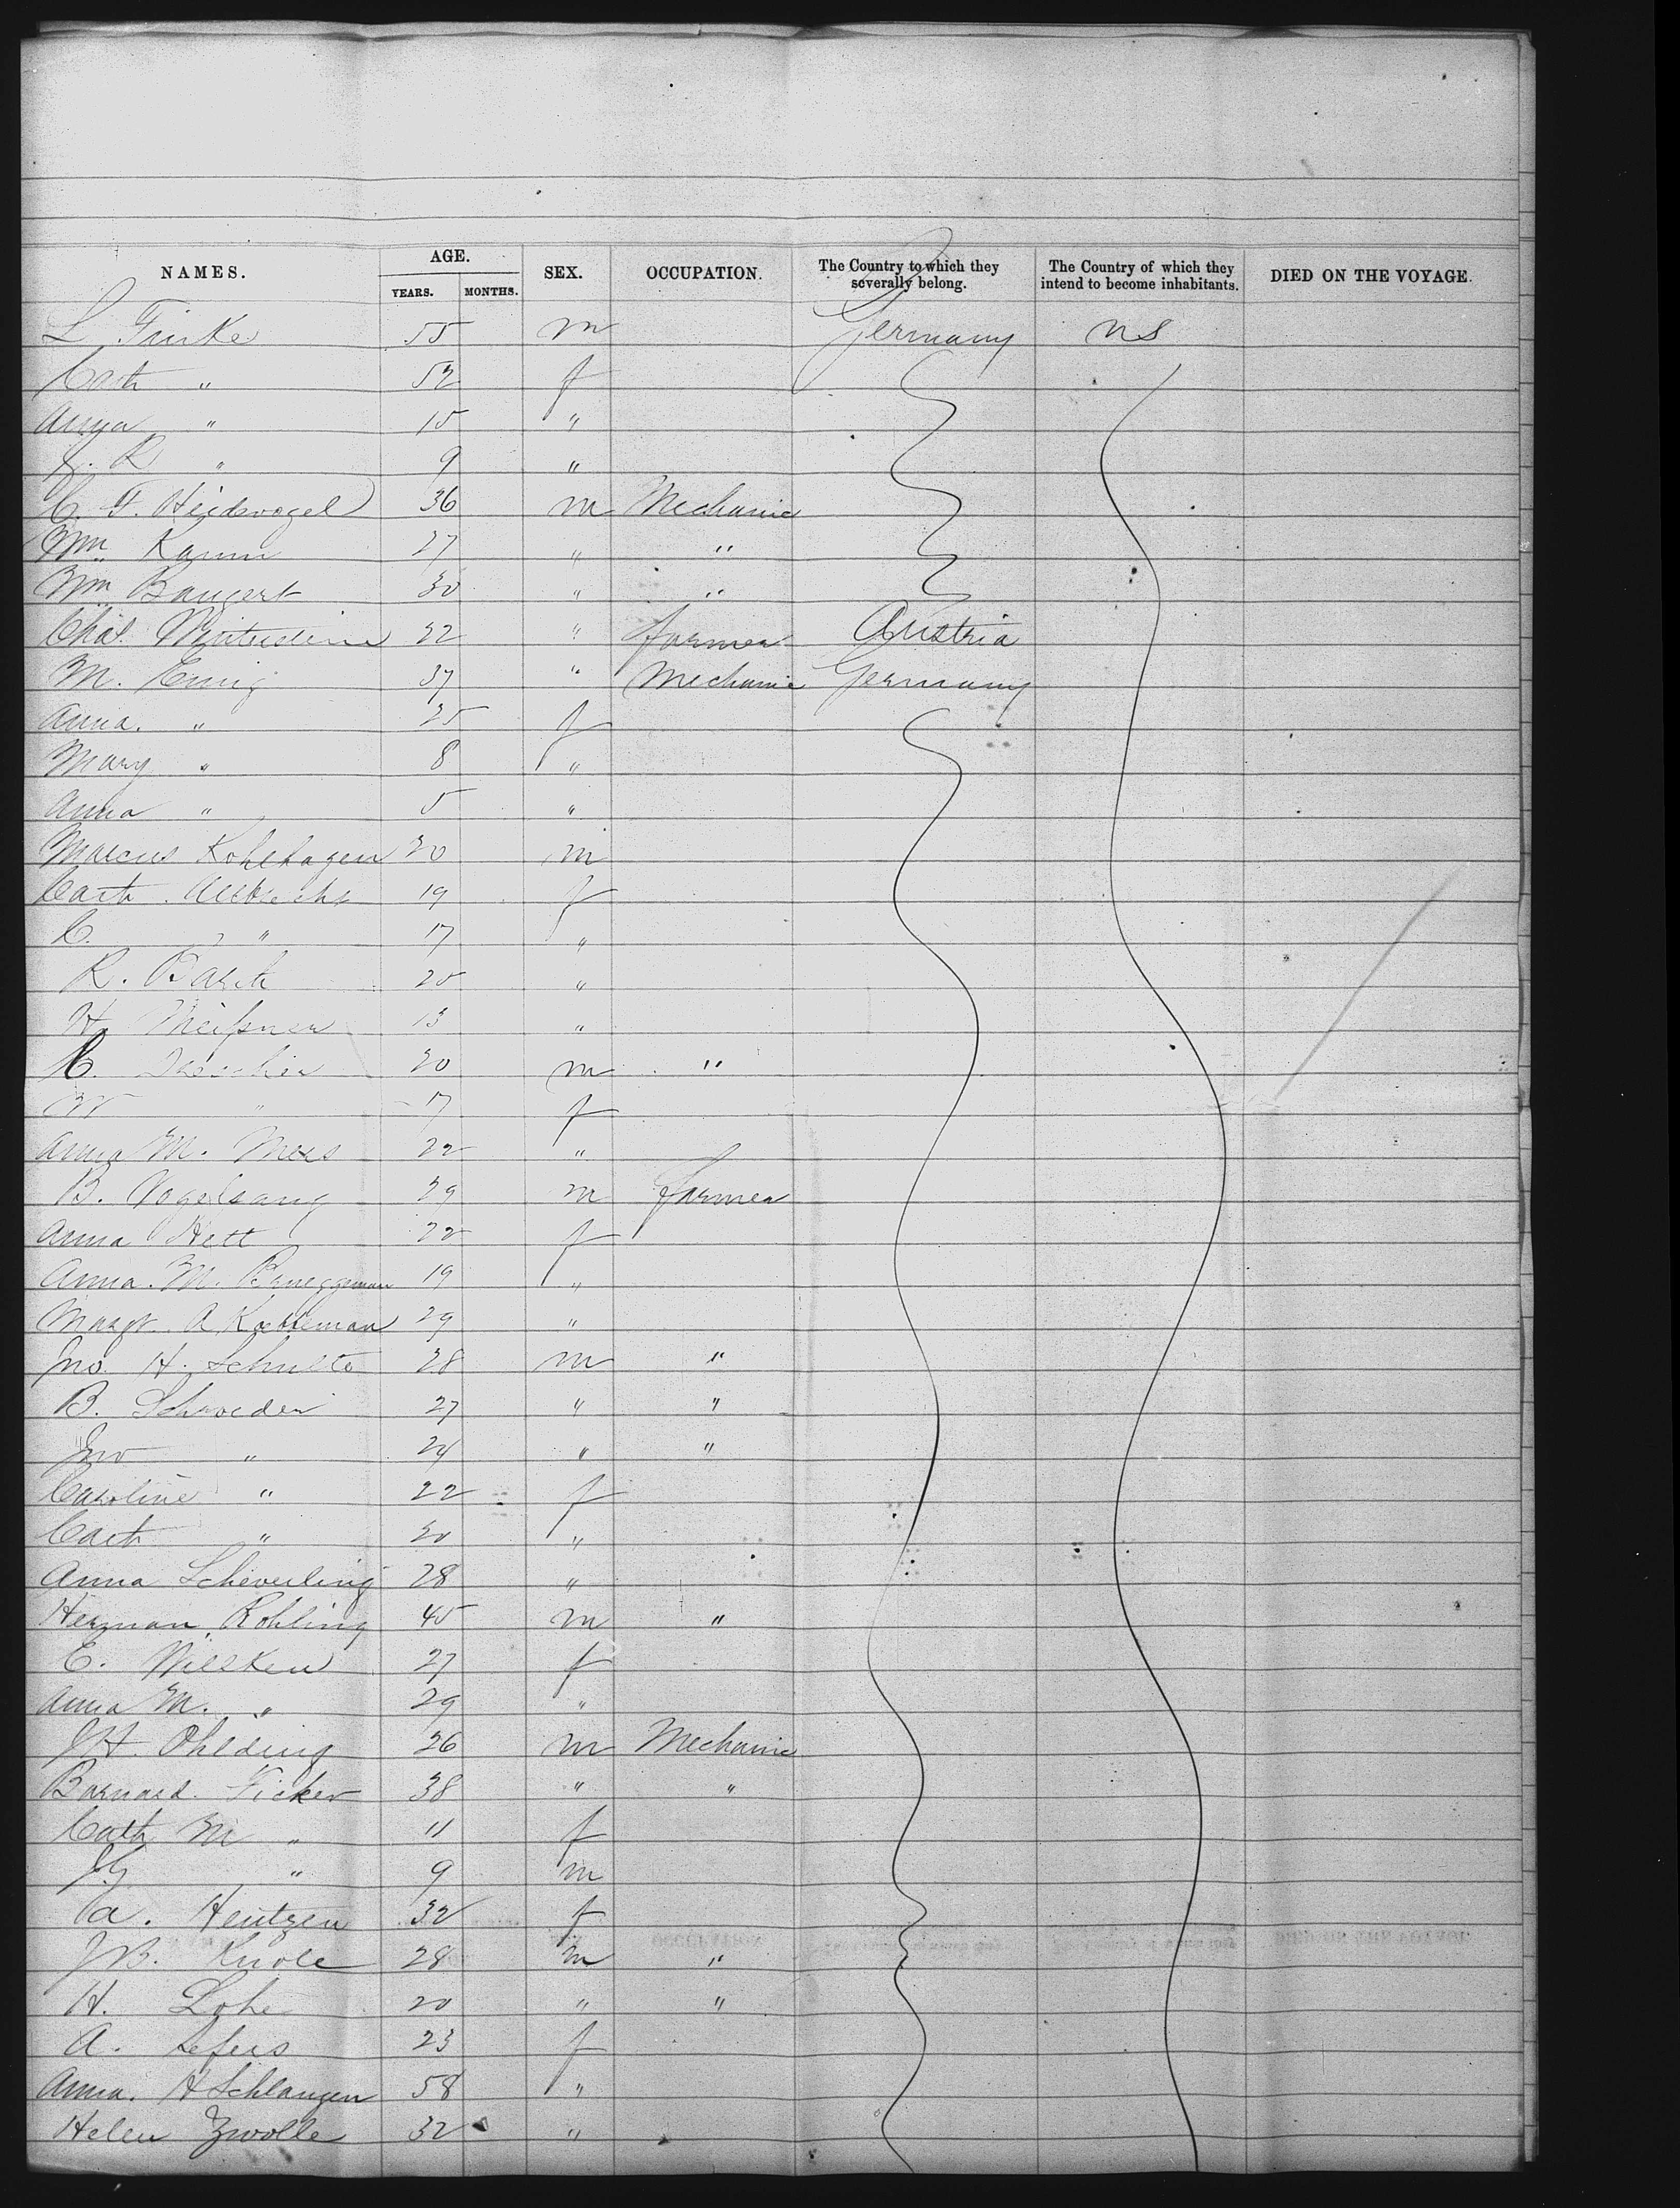 NAMES. AGE. SEX. OCCUPATION. The Country to which they severally belong. The Country of which they intend to become inhabitants. DIED ON THE VOYAGE.
YEARS. MONTHS.
L Finke 55 m Germany US
Cath " 52 f
Anna " 15 "
" 9 "
C. F. Heidevogel 36 m Mechanic
Wm Kamm 27 " "
Wm Bangert 30 " "
Chas. 22 " farmer Austria
M. Emig 37 " Mechanic Germany
Anna. " 25 f
Mary " 8 "
Anna " 5 "
Marcus Kohlhagen 20 m
Cath. Albrecht 19 f
C. " 17 "
R. Barth 20 "
H. Meißner 13 "
C. 20 m "
W " 17 f
Anna M. Mees 22 "
B. Vogelsang 29 m farmer
Anna Hett 22 f
Anna. M. Brueggeman 19 "
Margt. A 29 "
Jno. H. Schulte 28 m "
B. Schroeder 27 " "
Jno " 24 " "
Caroline " 22 f
Cath " 20 "
Anna Scheverling 28 "
Herman Rohling 45 m "
C. Wilsken 27 f
Anna M. " 29 "
J H. Ohlding 26 m Mechanic
Barnard Ficker 38 " "
Cath M " 11 f
J G " 9 m
Ca. Hentzen 32 f
J B. Knole 28 m "
H. Lohe 20 " "
A. Lefers 23 f
Anna. H Schlangen 58 "
Helen Zwolle 32 "